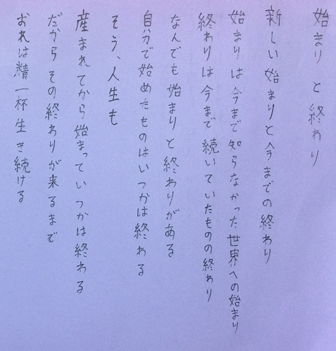 始まりと終わり
新しい始まりと今までの終わり
始まりは今まで知らなかった世界への始まり
終わりは今まで続いていたものの終わり
なんでも始まりと終わりがある
自分で始めたものはいつかは終わる
そう、人生も
産まれてから始まっていつかは終わる
だからその終わりが来るまで
おれは精一杯生き続ける